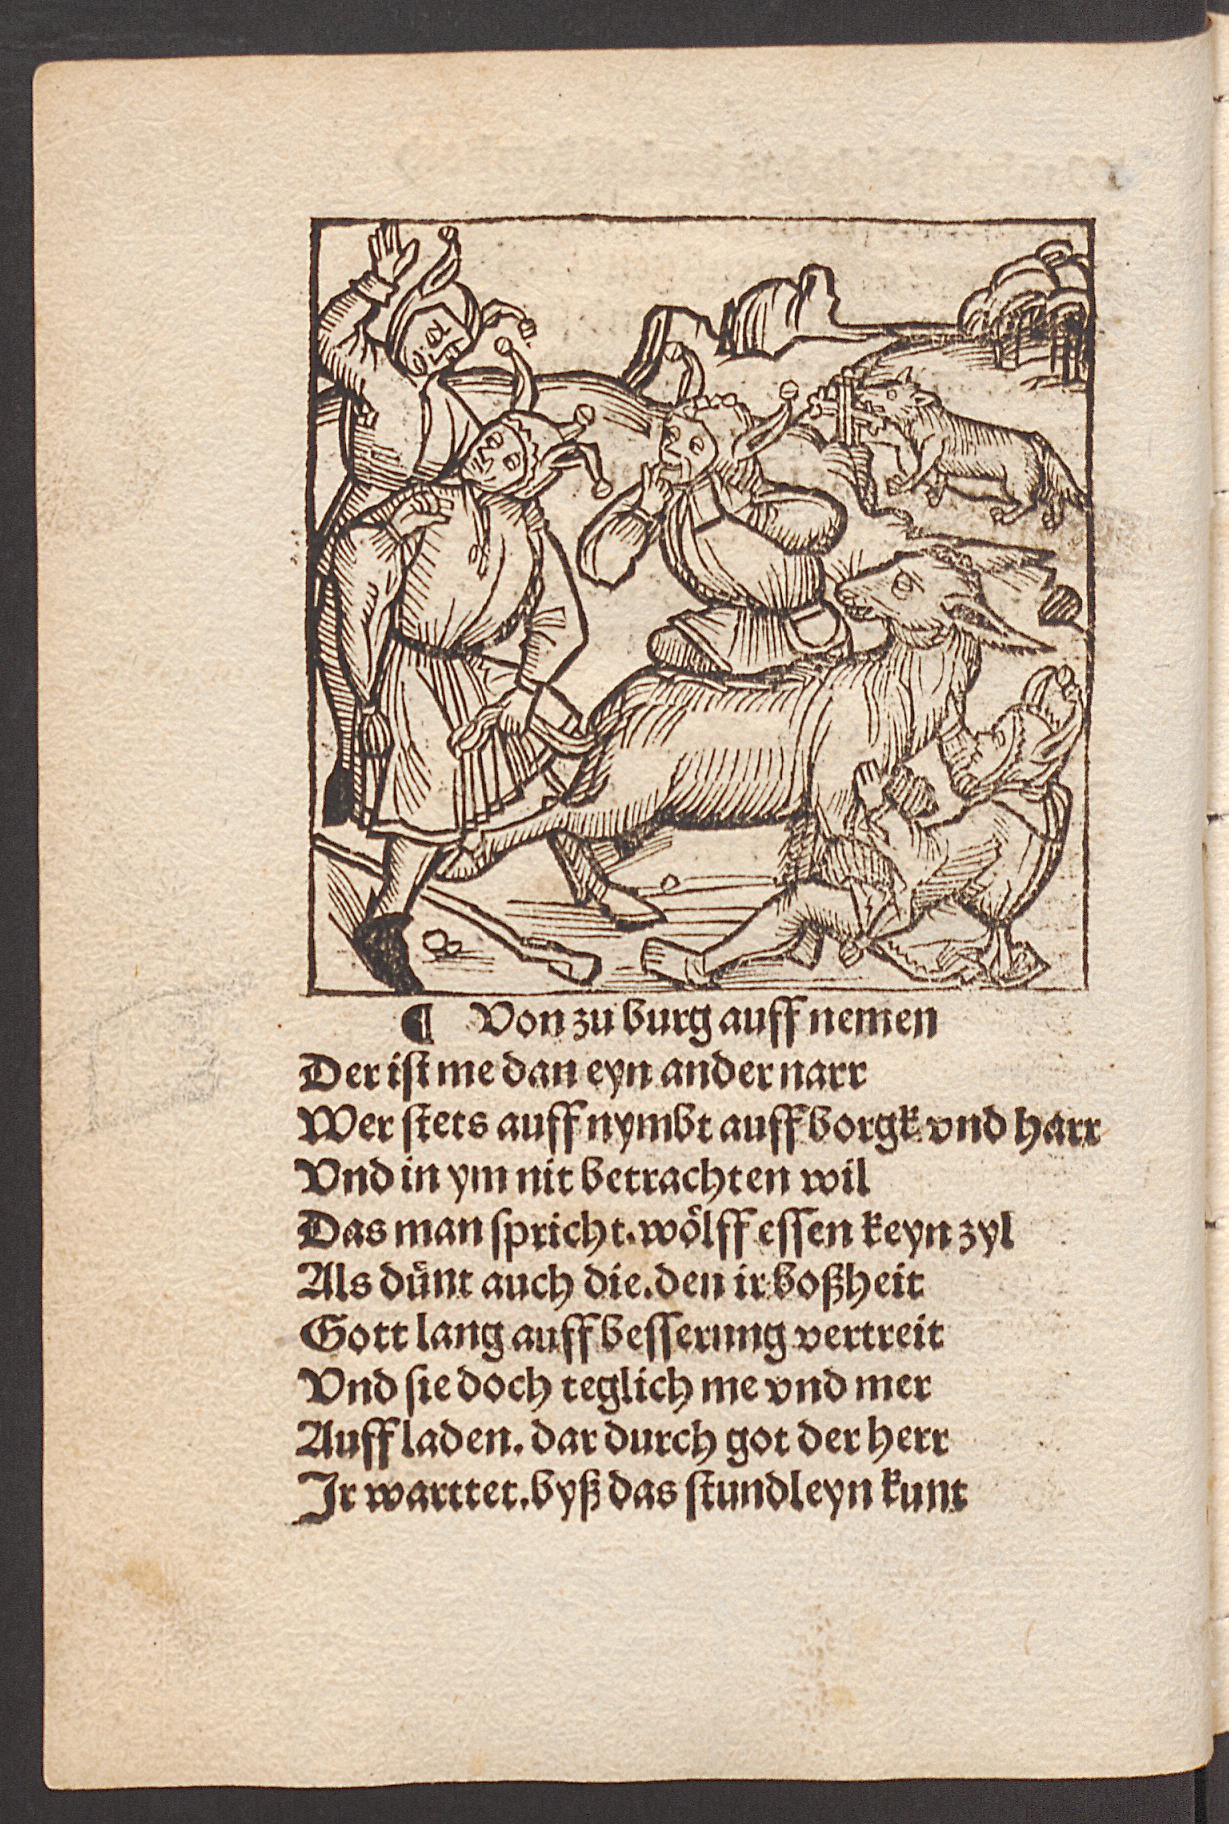 ¶ Von zu burg auff nemen
Der ist me dan eyn ander narr
Wer stets auff nymbt auff borgk vnd harr
Vnd in ym nit betrachten wil
Das man spricht. wölff essen keyn zyl
Als dünt auch die. den ir boßheit
Gott lang auff besserung vertreit
Vnd sie doch teglich me vnd mer
Auff laden. dar durch got der herr
Ir warttet. byß das stundleyn kunt